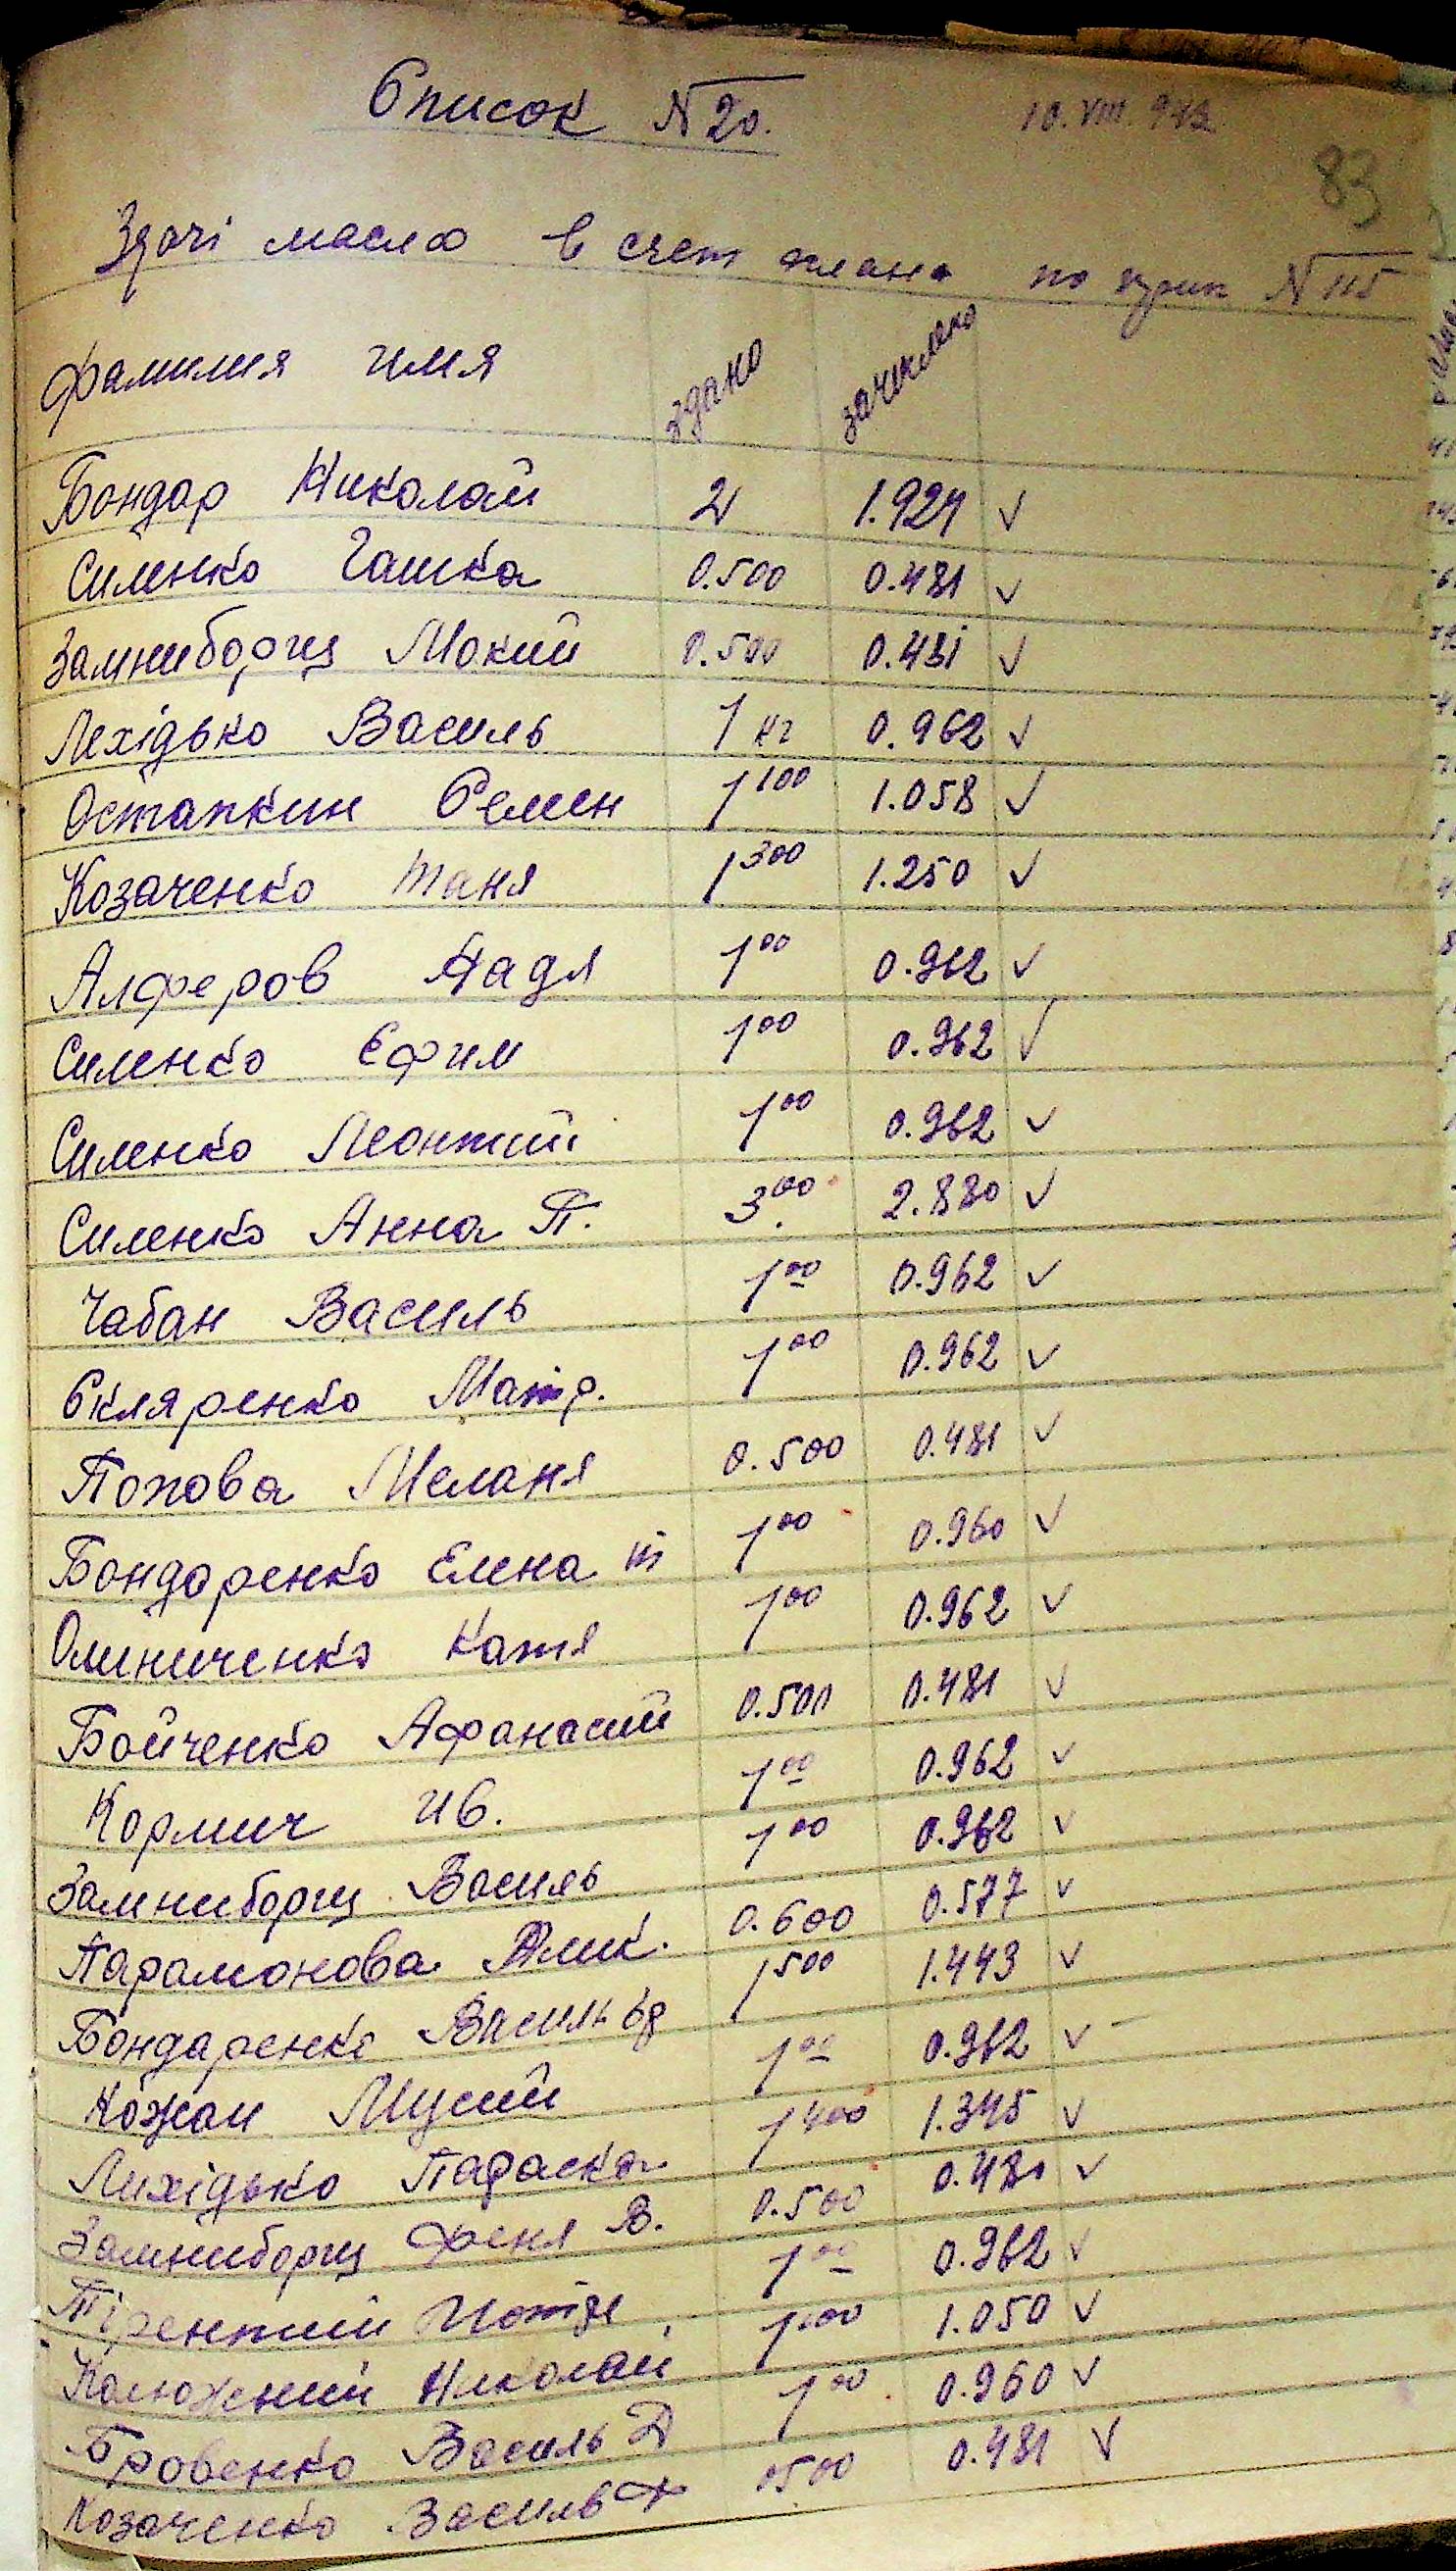 Список №20. 10.VIII.942
83
Здачі масла в счет плана по прик №115
фамилия имя здано зачислено
Бондар Николай 2 1.924 ✓
Силенко Гашка 0.500 0.481 ✓
Замниборщ Мокий 0.500 0.481 ✓
Лехідько Василь 1 кг 0.962 ✓
Остапкин Семен 1 100 1.058 ✓
Козаченко Таня 1 300 1.250 ✓
Алферов Надя 1 00 0.962 ✓
Силенко Єфим 1 00 0.962 ✓
Силенко Леонтий 1 00 0.962 ✓
Силенко Анна П. 3 00 2.880 ✓
Чабан Василь 1 00 0.962 ✓
Скляренко Матр. 1 00 0.962 ✓
Попова Меланя 0.500 0.481 ✓
Бондаренко Елена т 1 00 0.960 ✓
Олиниченко Катя 1 00 0.962 ✓
Бойченко Афанасий 0.500 0.481 ✓
Кормич Ив. 1 00 0.962 ✓
Замниборщ Василь 1 00 0.962 ✓
Парамонова 0.600 0.577 ✓
Бондаренко Василь 1 500 1.443 ✓
Кожан Мусий 1 00 0.962 ✓
Лихідько Параска 1 400 1.345 ✓
Замниборщ Феня В. 0.500 0.480 ✓
Тірентий 1 00 0.962 ✓
Калюжний Николай 1.050 ✓
Бровенко Василь Д 1 00 0.960 ✓
Козаченко Василь Ф 0500 0.481 ✓